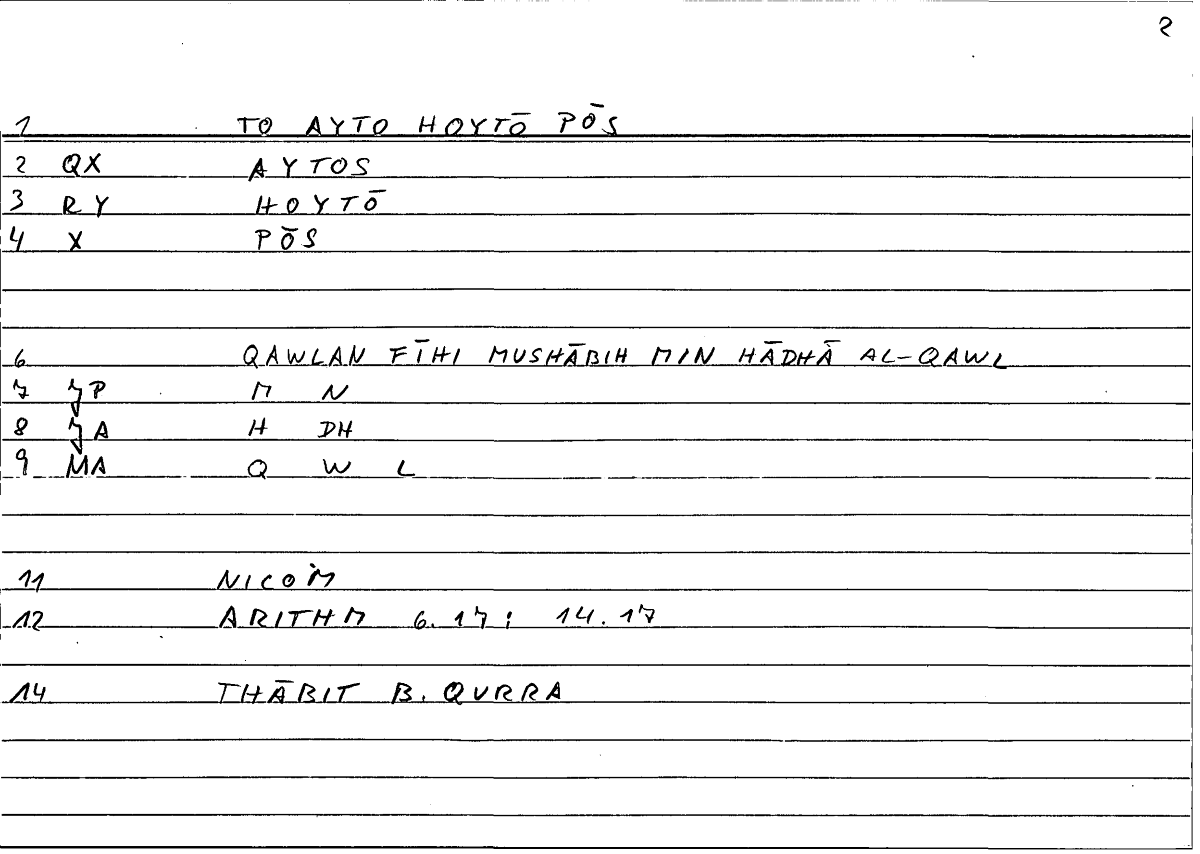 2
1 TO AYTO HOYTŌ PŌS
2 QX AYTOS
3 RY HOYTŌ
4 X PŌS
6 QAWLAN FĪHI MUSHĀBIH MIN HĀDHĀ AL-QAWL
7 JP M N
8 JA H DH
9 MA Q W L
11 NICOM
12 ARITHM 6.17; 14.17
14 THĀBIT B. QURRA